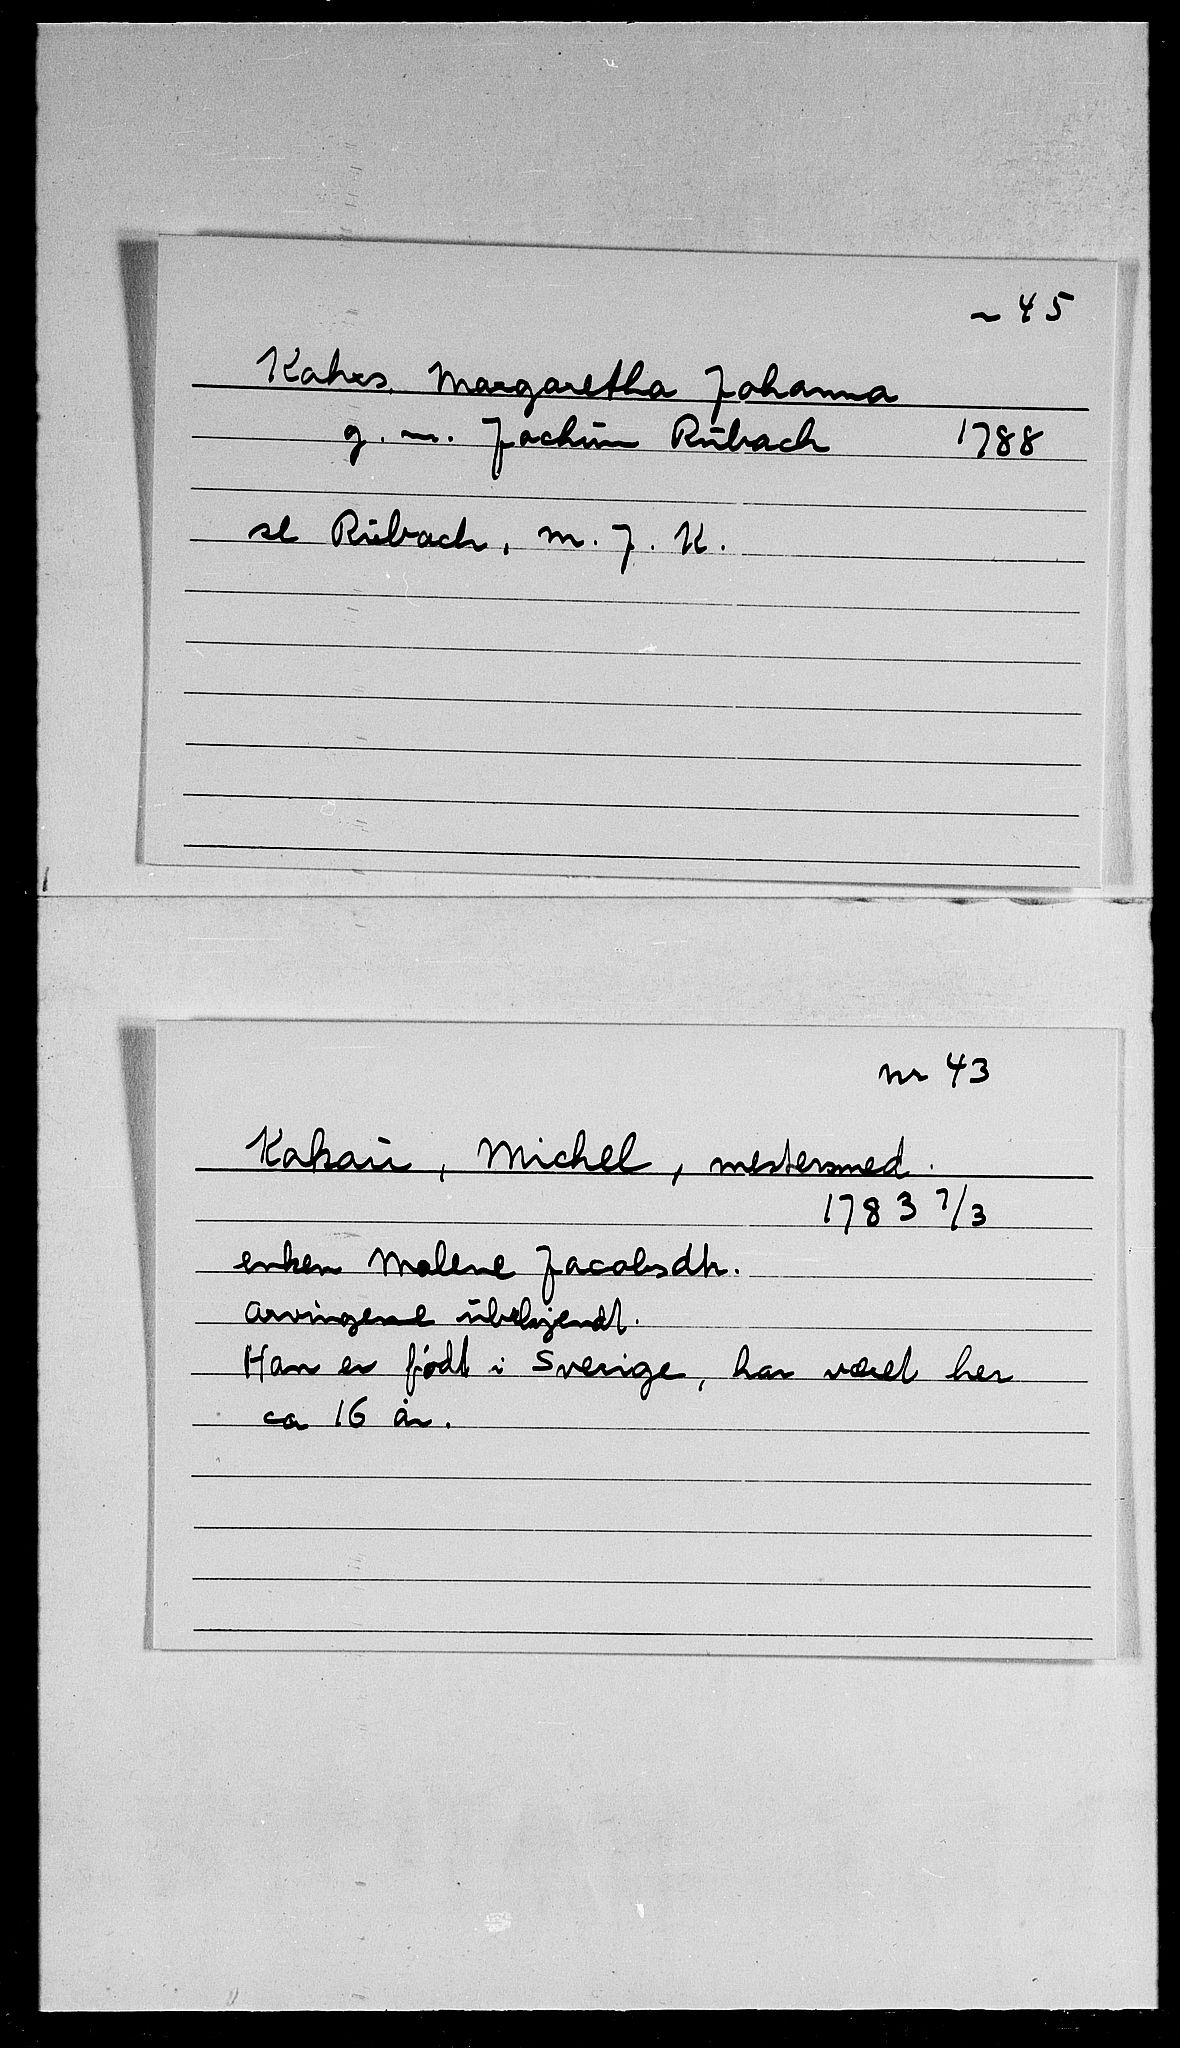 nr 45
Kahrs, Margaretha Johanna
g. m. Jochum Rübach 1788
se Rübach, M. J. K.
nr 43
Kakaü, Michel, mestersmed.
1783 7/3
enken Malene Jacobsdtr.
arvingene übekjendt.
Han er født i Sverige, har været her
ca 16 år.